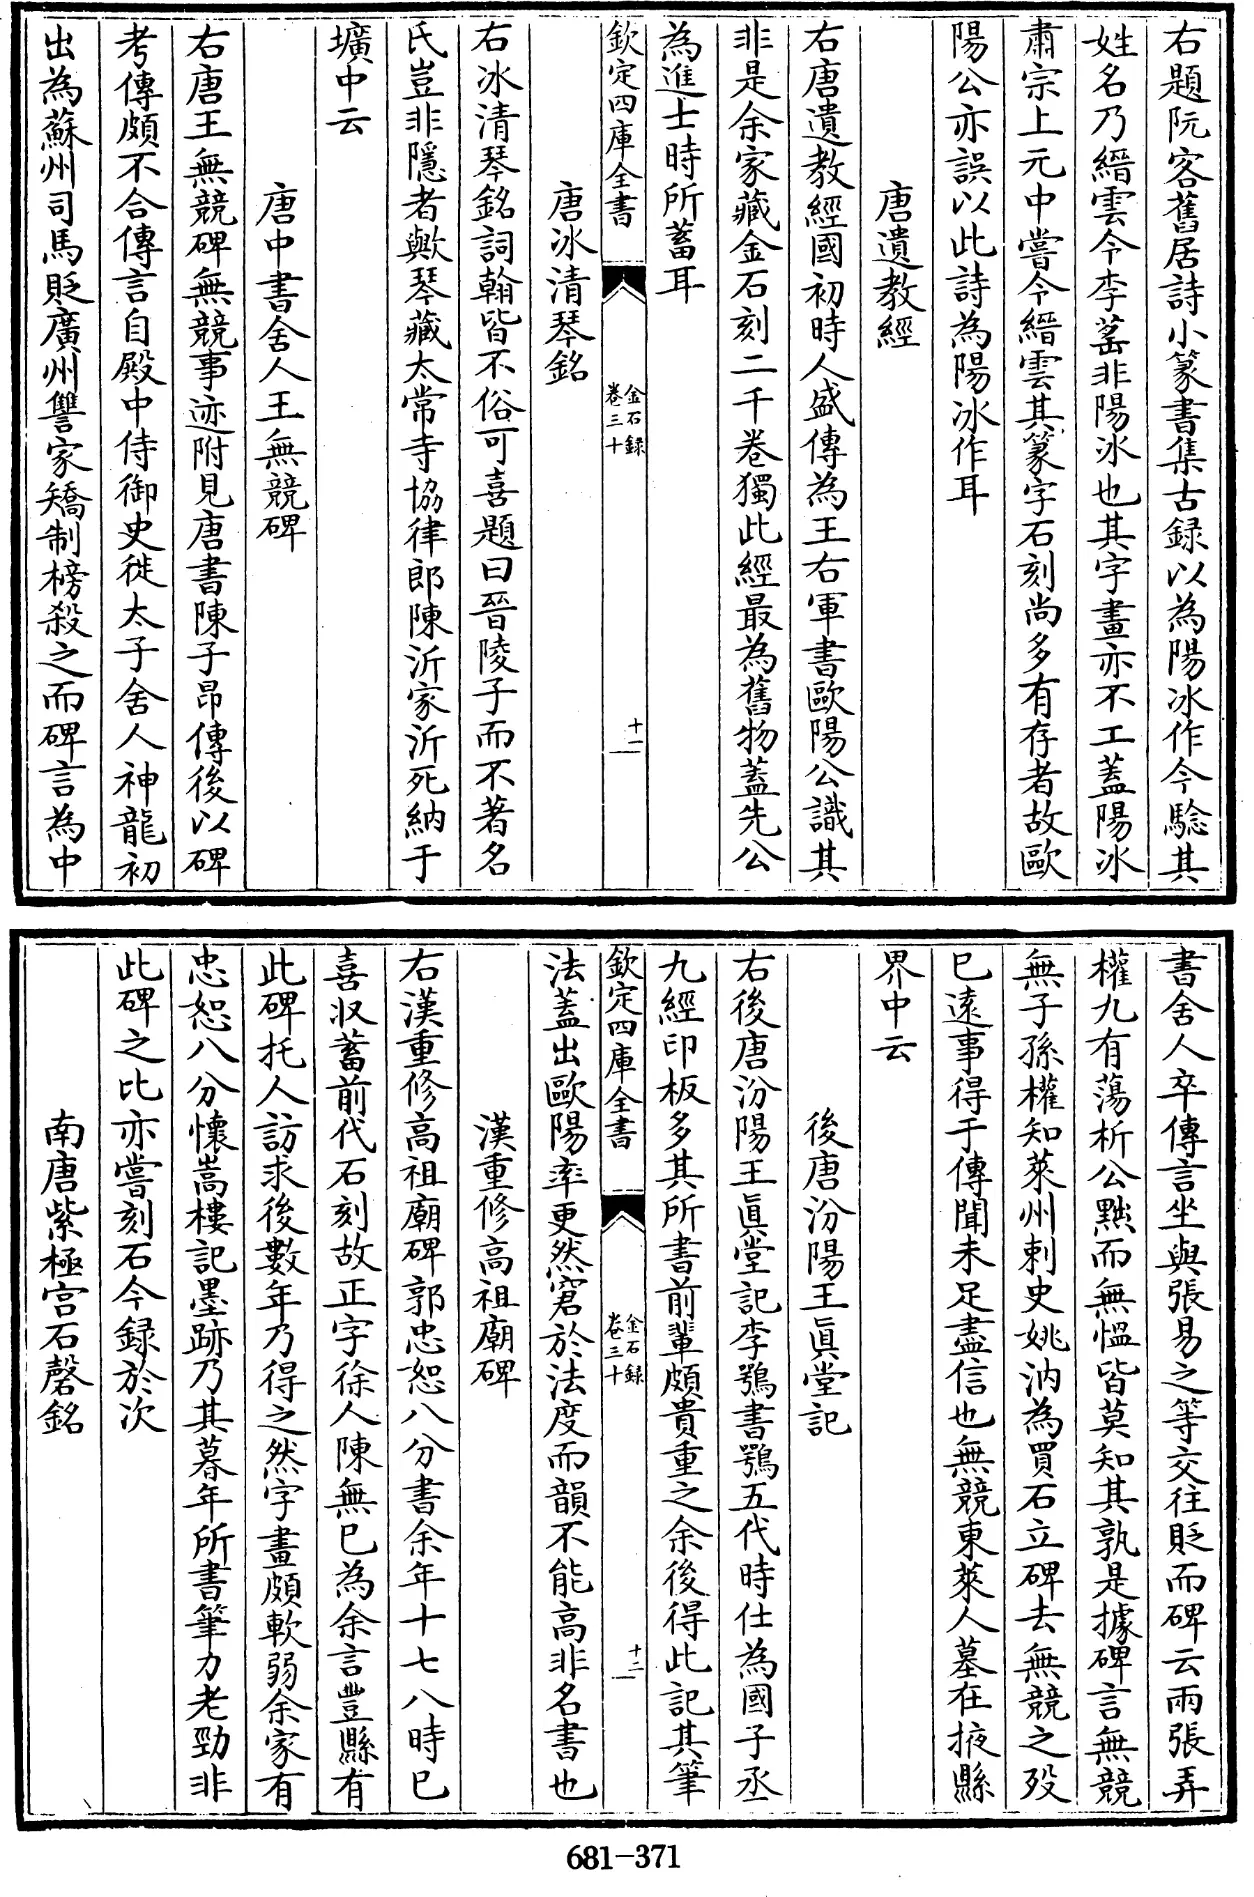 右題阮客舊居詩小篆書集古録以為陽冰作今驗其
姓名乃縉雲令李䓖非陽冰也其字畫亦不工蓋陽冰
肅宗上元中嘗令縉雲其篆字石刻尚多有存者故歐
陽公亦誤以此詩為陽冰作耳
唐遺教經
右唐遺教經國初時人盛傳為王右軍書歐陽公識其
非是余家藏金石刻二千卷獨此經最為舊物蓋先公
為進士時所蓄耳
欽定四庫全書
金石録
卷三十
十一
唐冰清琴銘
右冰清琴銘詞翰皆不俗可喜題曰晉陵子而不著名
氏豈非隱者歟琴藏太常寺協律郎陳沂家沂死納于
壙中云
唐中書舍人王無競碑
右唐王無競碑無競事迹附見唐書陳子昂傳後以碑
考傳頗不合傳言自殿中侍御史徙太子舍人神龍初
出為蘇州司馬貶廣州讐家矯制榜殺之而碑言為中
書舍人卒傳言坐與張易之等交往貶而碑云兩張弄
權九有蕩析公黜而無愠皆莫知其孰是據碑言無競
無子孫權知萊州刺史姚汭為買石立碑去無競之歿
已遠事得于傳聞未足盡信也無競東萊人墓在掖縣
界中云
後唐汾陽王真堂記
右後唐汾陽王真堂記李鶚書鶚五代時仕為國子丞
九經印板多其所書前輩頗貴重之余後得此記其筆
欽定四庫全書
金石録
卷三十
十二
法蓋出歐陽率更然窘於法度而韻不能高非名書也
漢重修高祖廟碑
右漢重修高祖廟碑郭忠恕八分書余年十七八時已
喜収蓄前代石刻故正字徐人陳無已為余言豐縣有
此碑托人訪求後數年乃得之然字畫頗軟弱余家有
忠恕八分懷嵩樓記墨跡乃其暮年所書筆力老勁非
此碑之比亦嘗刻石今録於次
南唐紫極宫石磬銘
681-371